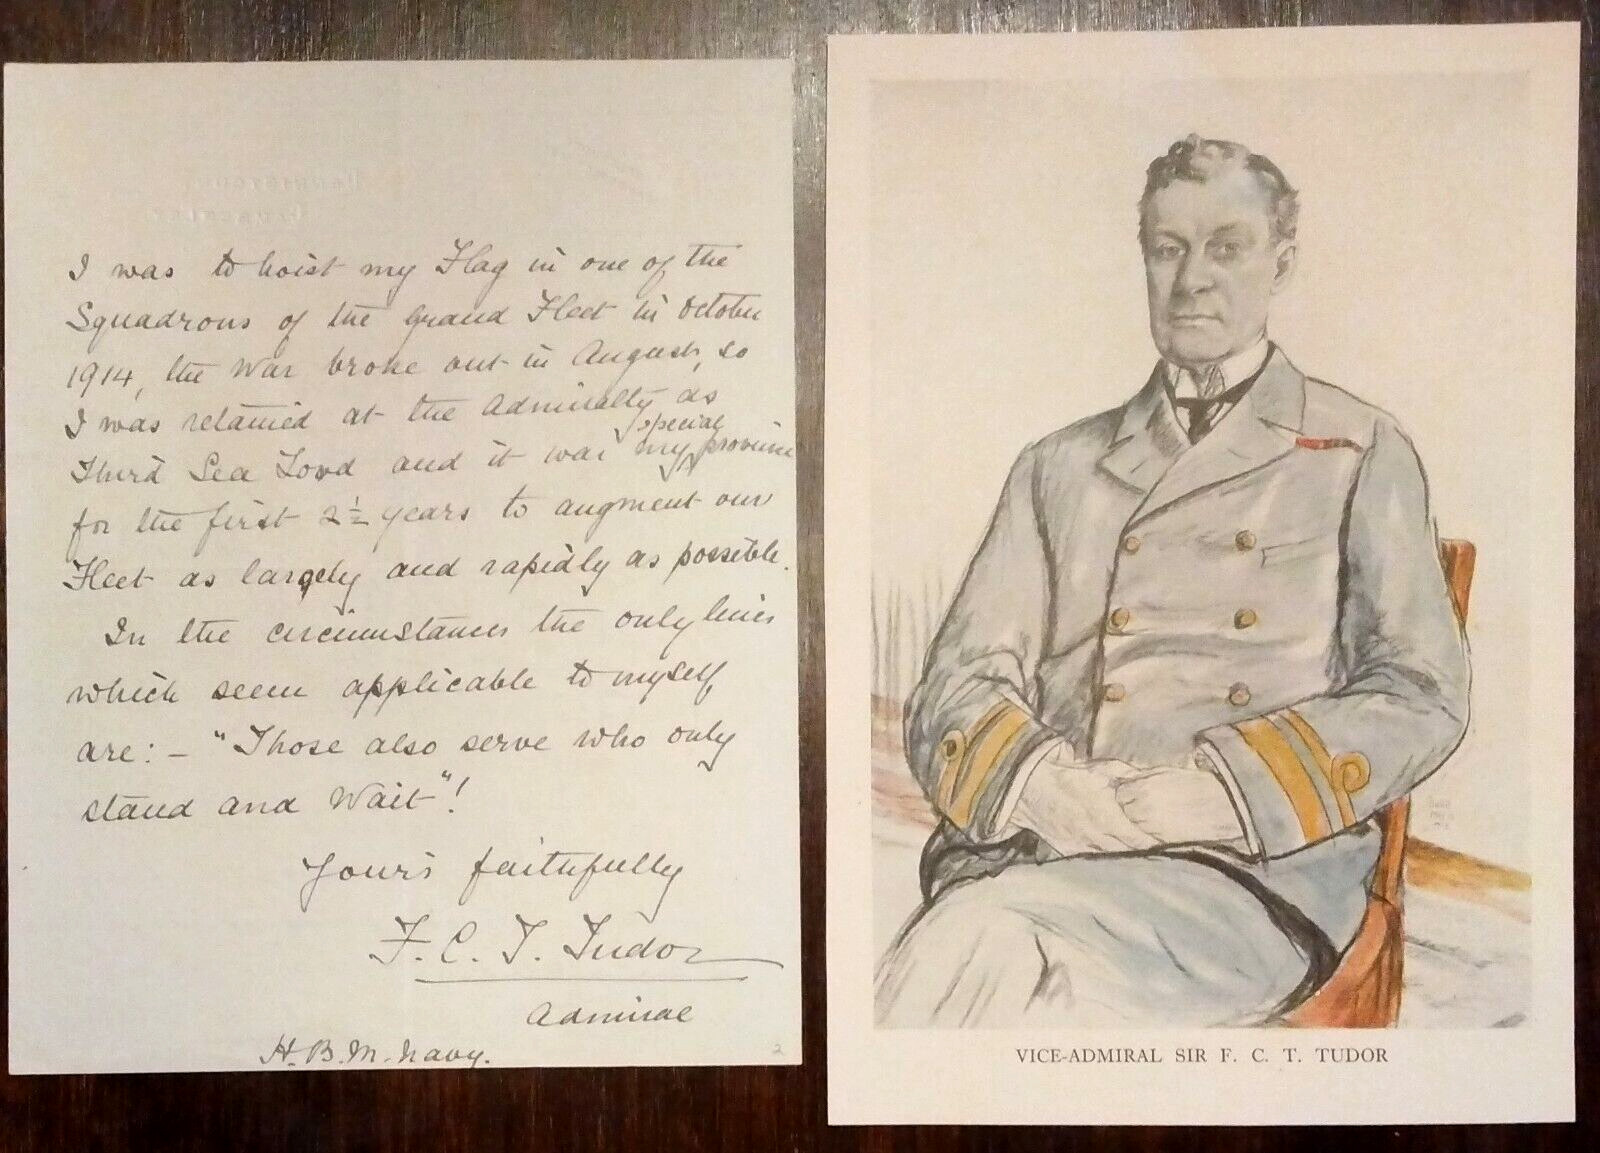 I was to hoist my Flag in one of the
Squadrons of the Grand Fleet in October
1914, the War broke out in August, so
I was retained at the Admiralty as
Third Sea Lord and it was my special province
for the first 2½ years to augment our
Fleet as largely and rapidly as possible.
In the circumstances the only lines
which seem applicable to myself
are:- "Those also serve who only
stand and wait"!
Yours faithfully
F. C. T. Tudor
Admiral
H.B.M. Navy.
2
VICE-ADMIRAL SIR F. C. T. TUDOR